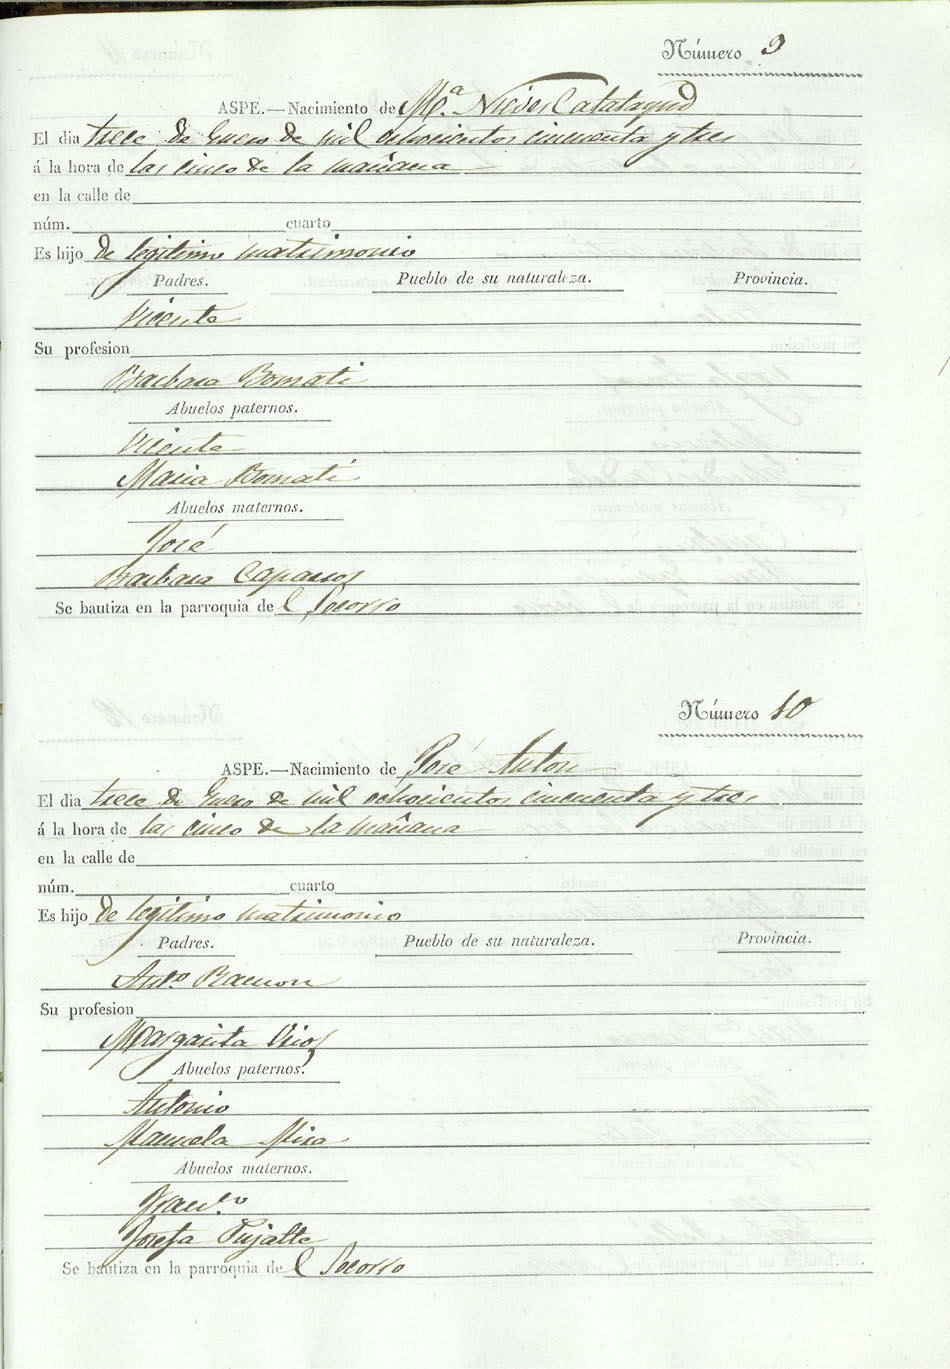 Número 9
ASPE.—Nacimiento de Mª Nieves Calatayud
El dia trece de Enero de mil ochocientos cincuenta y tres
á la hora de las cinco de la mañana
en la calle de
núm. cuarto
Es hijo de legitimo matrimonio
Padres. Pueblo de su naturaleza. Provincia.
Vicente
Su profesion
Barbara Bomati
Abuelos paternos.
Vicente
Maria Bomati
Abuelos maternos.
José
Barbara Caparros
Se bautiza en la parroquia de l Socorro
Número 10
ASPE.—Nacimiento de José Anton
El dia trece de Enero de mil ochocientos cincuenta y tres
á la hora de las cinco de la mañana
en la calle de
núm. cuarto
Es hijo de legitimo matrimonio
Padres. Pueblo de su naturaleza. Provincia.
Antº Ramon
Su profesion
Margarita
Abuelos paternos.
Antonio
Manuela Mira
Abuelos maternos.
Francº
Josefa Pujalte
Se bautiza en la parroquia de l Socorro